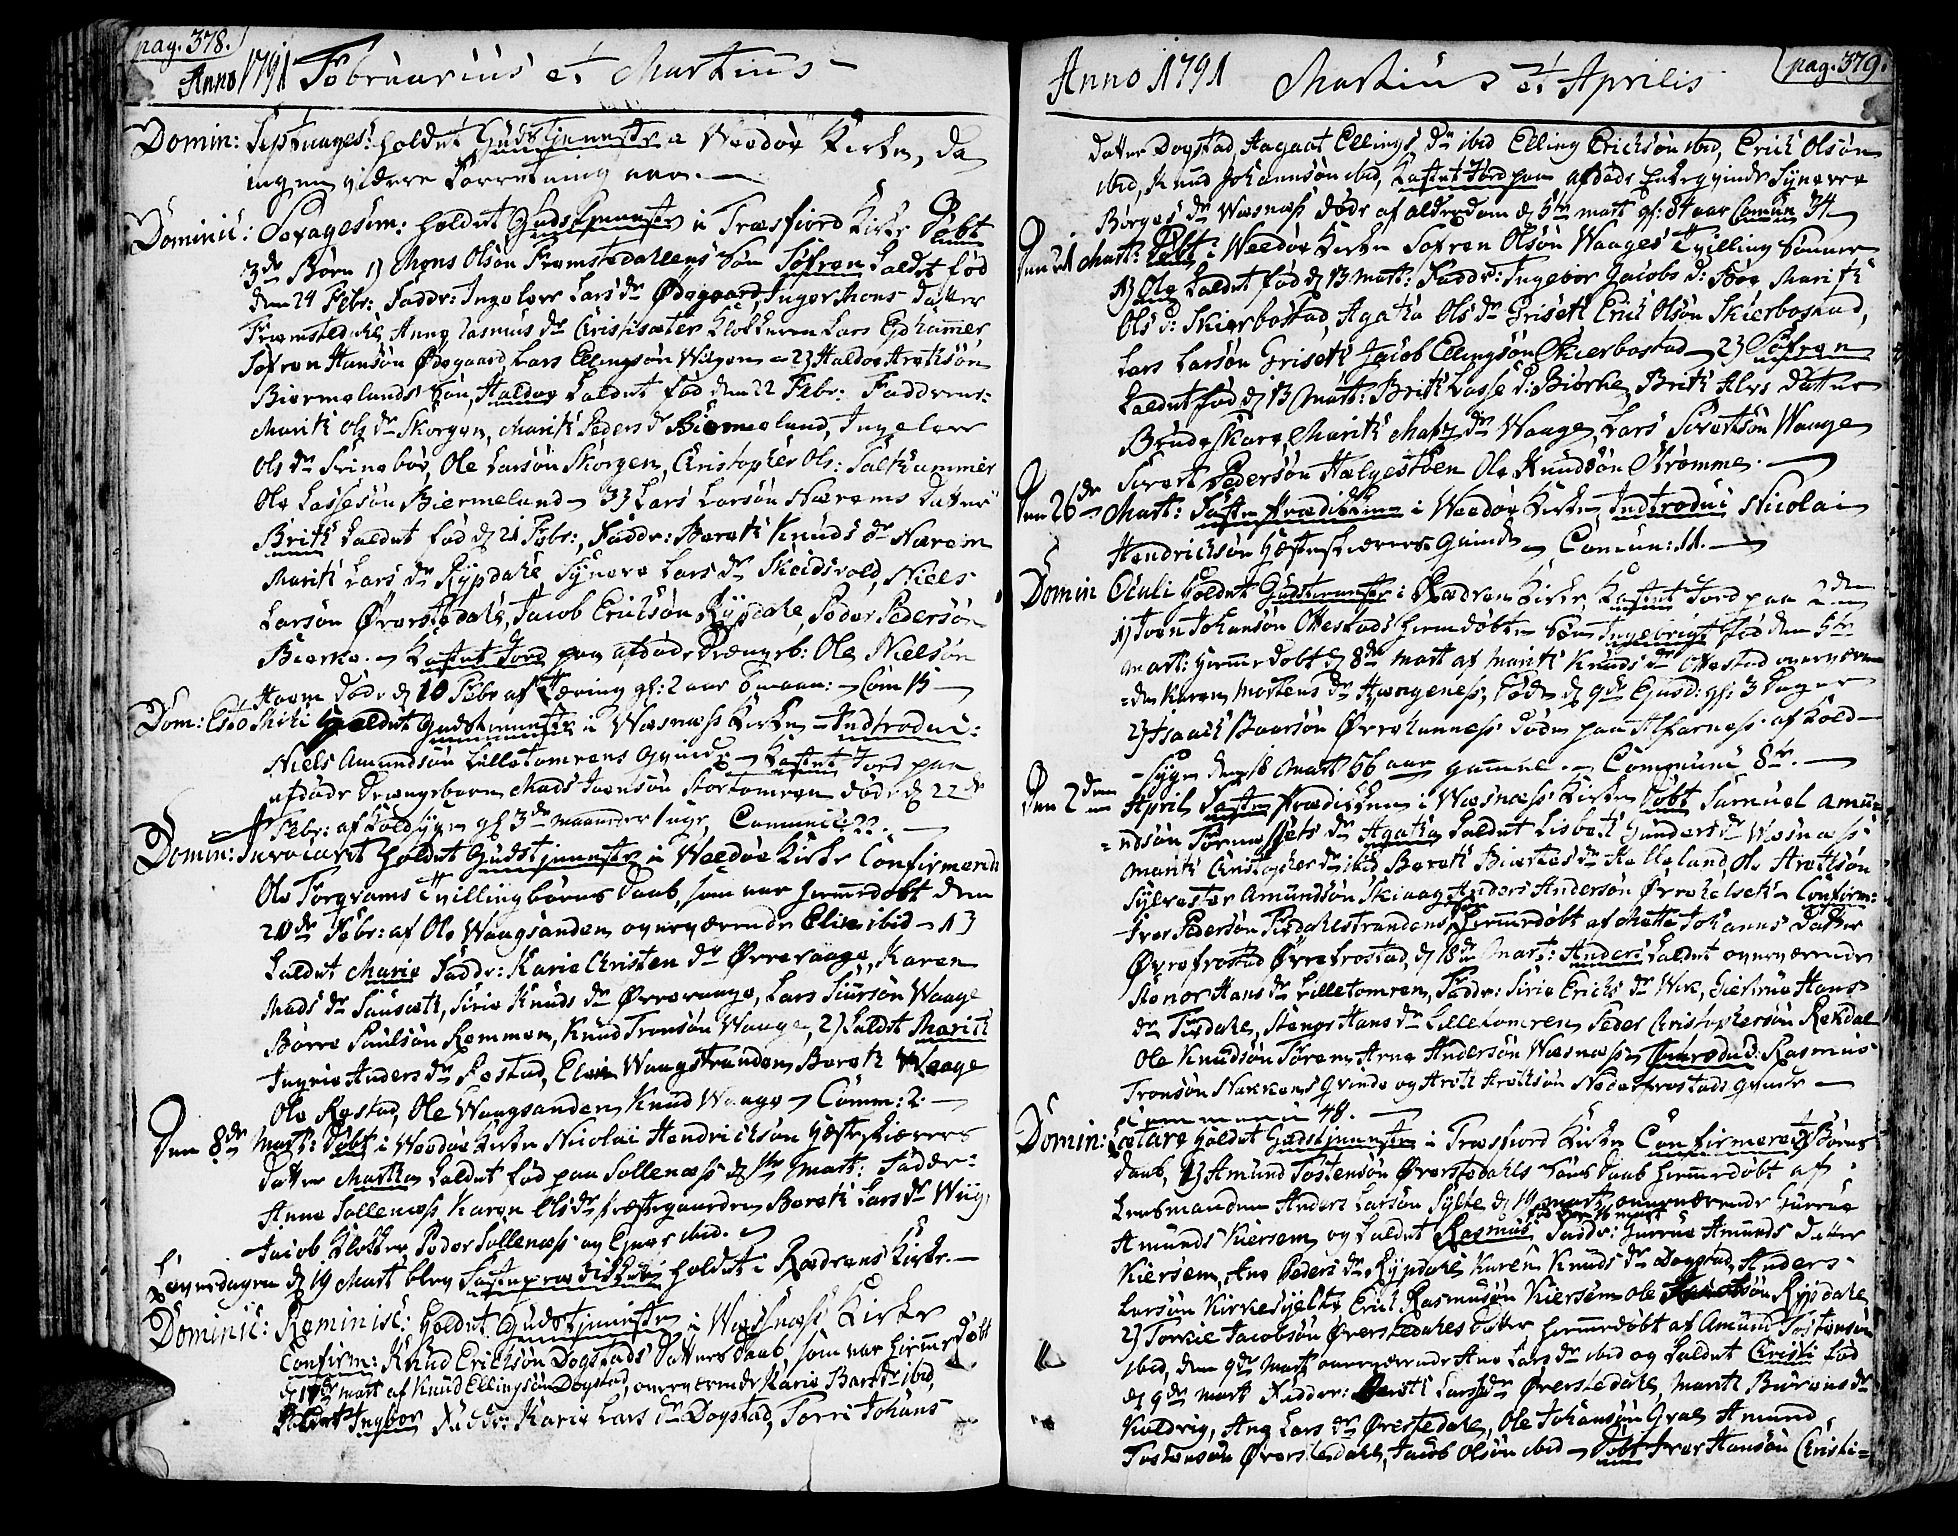 pag. 378.
Anno 1791 Februarius et Martius
Domin: Septuages: holdet Gudstjeneste i Weedøe Kirke, da
ingen videre Forretning var.
Dominic: Sexagesim: holdet Gudstjeneste i Træsfiord Kirke Døbt
3de Børn 1) Mons Olsøn Fremstedallens Søn Søfren kaldet fød
den 24 Febr: Faddr: Ingeleer Lars dr Ødegaard, Inger Mons datter
Fremstedahl, Anne Rasmus dr Christisæter Klokkeren Lars Eghammer
Søfren Hansøn Ødegaard, Lars Ellingsøn Wilgen 2) Haldor Aretsøn
Biermelands Søn, Haldor kaldet fød den 22 Febr: Faddrene:
Marit Ols dr Skorgen, Marit Peders dr Biermeland, Ingeleer
Ols dr Svinebøe, Ole Larsøn Skorgen, Christopher Ols: Salthammer
Ole Lassesøn Biermeland 3) Lars Larsøn Nærems datter
Brith kaldet fød d 21 Febr:, Faddr: Bereth Knuds dr Nærem
Marit Lars dr Rypdahl, Synøve Lars dr Skeidsvold, Niels
Larsøn Øverstedahl, Jacob Erichsøn Rypdahl, Peder Pedersøn
Bierke. Kastet Jord paa afdøde Drengeb: Ole Nielsøn
Haven døde d 10 Febr af Tæring gl: 2 aar 6 maan: Com 13
Dom: Esto Mihi holdet Gudstjeneste i Wæsnæss Kirke Introduc:
Niels Amundsøn Lilletomrens Qvinde Kastet Jord paa
afdøde Drengebarn Mads Iversøn Stortomren døde d 22de
Febr: af Koldsyge gl 3de maaneder 1 uge, Communic 22.
Domin: Invocavit holdet Gudstjeneste i Weedøe Kirke Confirmeret
Ole Torgrams Tvillingbørns Daab, som var hiemmedøbt den
20de Febr: af Ole Waagsanden overværende Elie ibid 1)
kaldet Marie Faddr: Karie Christen dr Øvrevaage, Karen
Mads dr Sauset, Sirie Knuds dr Øvrevaage, Lars Siursøn Waage
Børre Poulsøn Remmen, Knud Tronsøn Waage, 2) kaldt Marith
Ingrie Anders dr Rostad, Elen Waagstranden, Bereth Waage
Ole Røstad, Ole Waagsanden, Knud Waage Comm: 2.
Den 8de Mart: Døbt i Weedøe Kirke Nicolai Hendrichsøn Hestskierers
datter Martha kaldet fød paa Sollenæss d 1te Mart: Faddr:
Anne Sollenæss Karen Ols dr Præstegaarden Bereth Lars dr Wiig,
Jacob Klokker, Peder Sollenæss og Ener ibid.
Løverdagen d 19 Mart blev Fasteprædikken holdet i Rødvens Kirke.
Dominic: Reminisc: holdet Gudstjeneste i Wæsnæss Kirke
Confirm: Knud Erichsøn Dogstads datters daab, som var hiemmedøbt
d 17de Mart af Knud Ellingsøn Dogstad, overværende Karie Bard dr ibid,
kaldet Ingbor Faddr: Karie Lars dr Dogstad, Torri Johans

Anno 1791 Martius et Aprilis
pag. 379.
datter Dogstad, Aagaat Ellings dr ibid Elling Erichsøn ibid, Erich Olsøn
ibid, Knud Johannsøn ibid, Kastet Jord paa afdøde Enkeqvinde Synøve
Børges dr Wæsnæss døde af alderdom d 5te Mart gl: 84 aar Comun 34
Den 21 Mart: Døbt i Weedøe Kirke Søfren Olsøn Waages Tvilling Sønner
1) Ole kaldet fød d 13 Mart: Faddr: Ingebor Jacobs d: Bøe Marith
Ols d: Skierbostad, Agatha Ols dr Griseth Erich Olsøn Skierbostad,
Lars Larsøn Griseth Jacob Ellingsøn Skierbostad 2) Søfren
kaldet fød d 13 Mart: Brith Lasse d: Biørke, Brith Alvs datter
Brudeskare, Marith Mats dr Waage, Lars Sivertsøn Waage
Sivert Pedersøn Helgestøen Ole Knudsøn Strømme.
Den 26de Mart: Faste Prædikken i Weedøe Kirke, Indtroduc Nicolai
Hendrichsøn Hestskierers Qvinde Comun: 11.
Domin Oculi holdet Gudstieneste i Rødven Kirke Kastet Jord paa 2den
1) Iver Johansøn Ottestads hiemdøbte Søn Ingebrigt fød den 5te
Mart: hiemmedøbt d 8de Mart af Marith Knuds dr Ottestad overværen
de Karen Mortens dr Hængenæss, døde d 9de Ejusd: gl: 3 dager
2) Isaach Baarsøn Øvrehunnæss døde paa Alfarnæss af Kold-
syge den 18 Mart 56 aar gammel. Communic 8te.
Den 2den April Faste Prædikken i Wæsnæss Kirke Døbt Samuel Amu-
ndsøn Tørnessets dr Agatha kaldet Lisbeth Gunders dr Wæsnæss
Marith Christopher dr ibid Bereth Biertes dr Helleland, Ole Aretsøn
Sylvester Amundsøn Skiaag Anders Andersøn Øvrehelset Confirm:
Iver Pedersøn Tredahlstrandens Søn hiemmedøbt af Mette Johans datter
Øvrefrostad Øvrefrostad, d 18de Mart: Anders kaldet overværende
Stenor Hans dr Lilletomren, Faddr: Sirie Erichs dr Wik, Giertrue Hans
dr Tredahl, Stenor Hans dr Lilletomren Peder Christophersøn Rekdal
Ole Knudsøn Tøren, Arne Andersøn Wæsnæss Introduc: Rasmus
Tronsøn Nakkens Qvinde og Areth Arethsøn Nedrefrostads Qvinde
Communic 48.
Domin: Lætare holdet Gudstjeneste i Træsfiord Kirke Confirmeret 2 Børns
daab, 1) Amund Tostensøn Øverstedahls Søns daab hiemmedøbt af
Lensmanden Anders Larsøn Sylte d 19 Mart overværende Gurrue
Amunds Kiersem og kaldet Rasmus fød den 16 Mart Faddr: Gurrue Amunds datter
Kiersem, Ane Peders dr Rypdahl Karen Knuds dr Dogstad, Anders
Larsøn Kirkesylte, Erich Rasmusøn Kiersem Ole Rypdahl
2) Torkie Jacobsøn Øverstedahls datter hiemmedøbt af Amund Tostensøn
ibid, den 9de Mart overværende Ane Lars dr ibid og kaldet Christi fød
d 9de Mart Faddr: Bereth Lars dr Øverstedahl, Marit Biørens dr
Koldrig, Ane Lars dr Øverstedahl, Ole Johansøn Græ Amund
Tostensøn Øverstedahl, Jacob Olsøn ibid Døbt Iver Hansøn Christi-